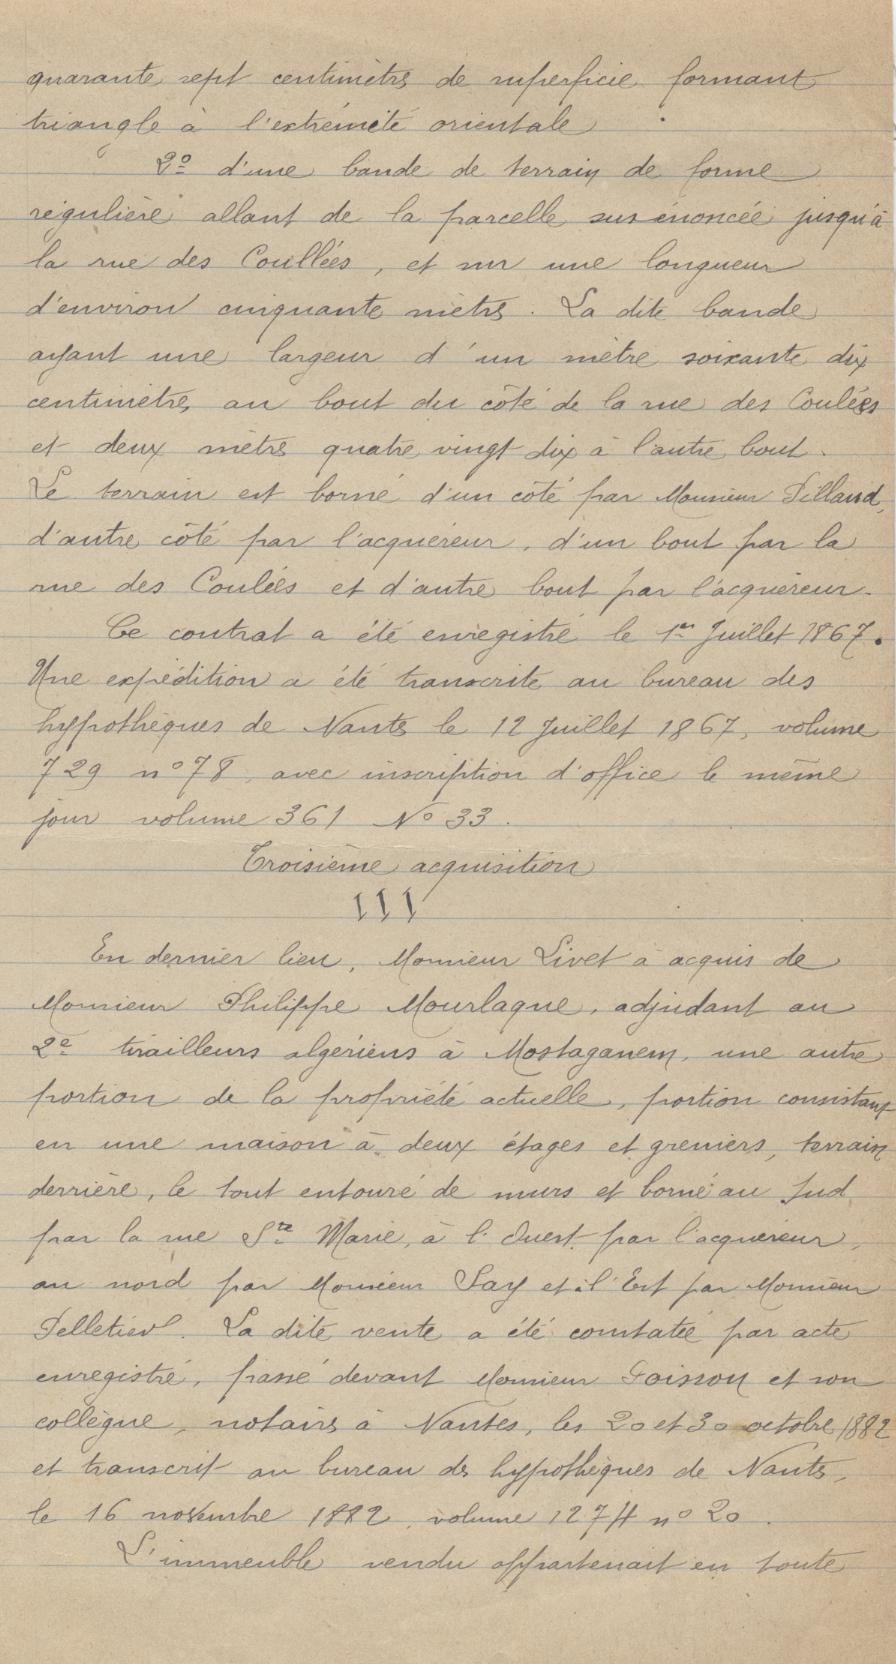 quarante sept centimètres de superficie formant
triangle à l'extrémité orientale
2º d'une bande de terrain de forme
régulière allant de la parcelle sus énoncée jusqu'à
la rue des Coullées, et sur une longueur
d'environ cinquante mètres. La dite bande
ayant une largeur d'un mètre soixante dix
centimètres au bout du côté de la rue des Coulées
et deux mètres quatre vingt dix à l'autre bout.
Le terrain est borné d'un côté par Monsieur Pilland,
d'autre côté par l'acquéreur, d'un bout par la
rue des Coulées et d'autre bout par l'acquéreur.
Ce contrat a été enregistré le 1er Juillet 1867.
Une expédition a été transcrite au bureau des
hypothèques de Nantes le 12 Juillet 1867, volume
729 nº 78 avec inscription d'office le même
jour volume 361 Nº 33.
Troisième acquisition
III
En dernier lieu, Monsieur Livet à acquis de
Monsieur Philippe Mourlaque, adjudant au
2e tirailleurs algériens à Mostaganem, une autre
portion de la propriété actuelle, portion consistant
en une maison à deux étages et greniers, terrain
derrière, le tout entouré de murs et borné au Sud
par la rue Ste Marie, à l'Ouest par l'acquéreur,
au nord par Monsieur Say et à l'Est par Monsieur
Pelletier. La dite vente a été constatée par acte
enregistré, passé devant Monsieur Goisson et son
collègue, notaires à Nantes, les 20 et 30 octobre 1882
et transcrit au bureau des hypothèques de Nantes,
le 16 novembre 1882, volume 1274 nº 20.
L'immeuble vendu appartenait en toute